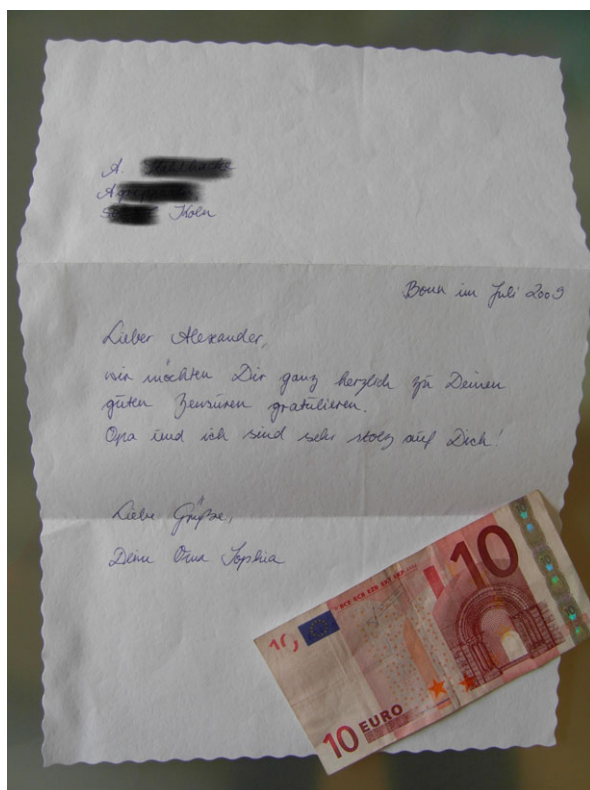 A.
Köln
Bonn im Juli 2009
Lieber Alexander,
wir möchten Dir ganz herzlich zu Deinen
guten Zensuren gratulieren.
Opa und ich sind sehr stolz auf Dich!
Liebe Grüße,
Deine Oma Sophia
10
10
10 EURO